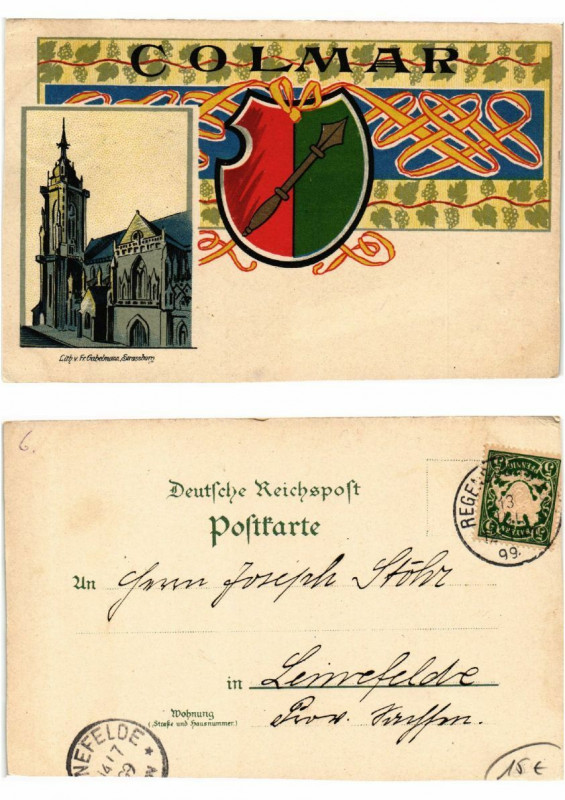 COLMAR
Lith. v. Fr. Gabelmann, Strassburg
6.
Deutsche Reichspost
Postkarte
An Herrn Joseph Stöhr
in Leinefelde
Wohnung
(Straße und Hausnummer)
Prov. Sachsen.
REGEN
13
99.
5
BAYERN
NEFELDE *
14/7
99
15 €